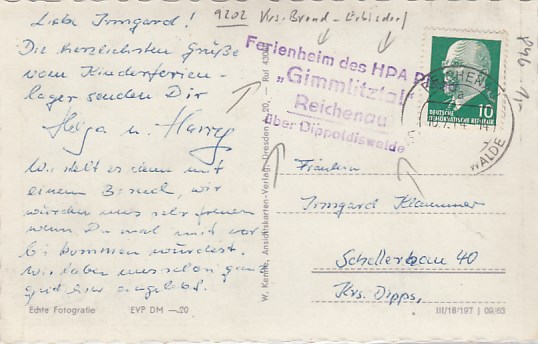 Liebe Irmgard!
Die herzlichsten Grüße
vom Kinderferien-
lager senden Dir
Helga u. Harry
Wie steht es denn mit
einem Besuch, wir
würden uns sehr freuen
wenn Du mal mit vor
bei kommen würdest.
Wir haben uns schon ganz
gut hier eingelebt.
Echte Fotografie
EVP DM —.20
W. Kenne, Ansichtskarten-Verlag, Dresden
20, — Ruf
9202 Krs. Brand-Erbisdorf
Ferienheim des HPA
„Gimmlitztal"
Reichenau
über Dippoldiswalde
10
DEUTSCHE
DEMOKRATISCHE REPUBLIK
WALDE
Fräulein
Irmgard Klammer
Schellerhau 40
Krs. Dipps,
III/18/197 J 09/63